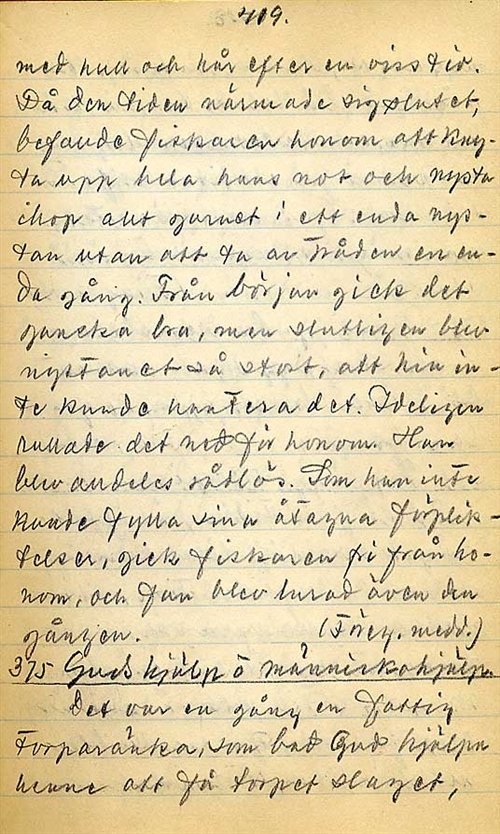 419.
med hull och hår efter en viss tid.
Då den tiden närmade sig slutet,
befande fiskaren honom att kny-
ta upp hela hans not och nysta
ihop allt garnet i ett enda nys-
tan utan att ta av tråden en en-
da gång. Från början gick det
gancka bra, men slutligen blev
nystanet så stort, att hin in-
te kunde hantera det. Ideligen
rullade det ned för honom. Han
blev alldeles rådlös. Som han inte
kunde fylla sina åtagna förplik-
telser, gick fiskaren fri från ho-
nom, och fan blev lurad även den
gången. (Föreg. medd.)
375 Guds hjälp o människohjälp.
Det var en gång en fattig
torparänka, som bad Gud hjälpa
henne att få torpet slaget,